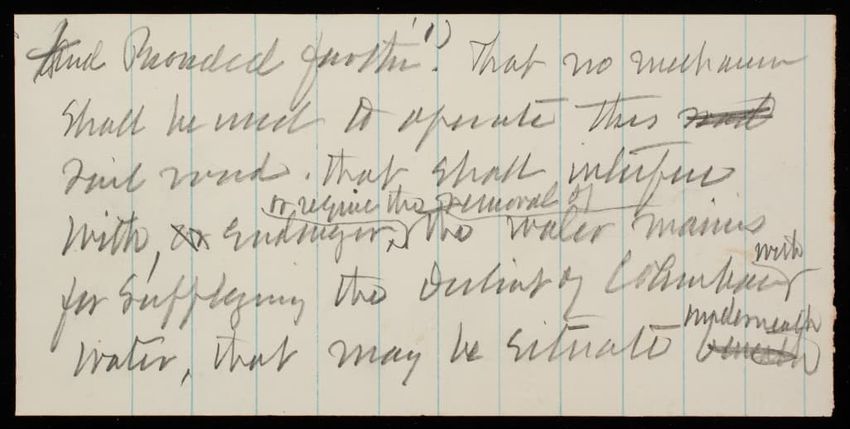 And Provided further". That no mechanism
shall be used to operate this road
rail road. that shall interfere
or require the removal of
with, or Endanger, the water mains
with
for Supplying the District of Columbia
underneath
water, that may be situate beneath